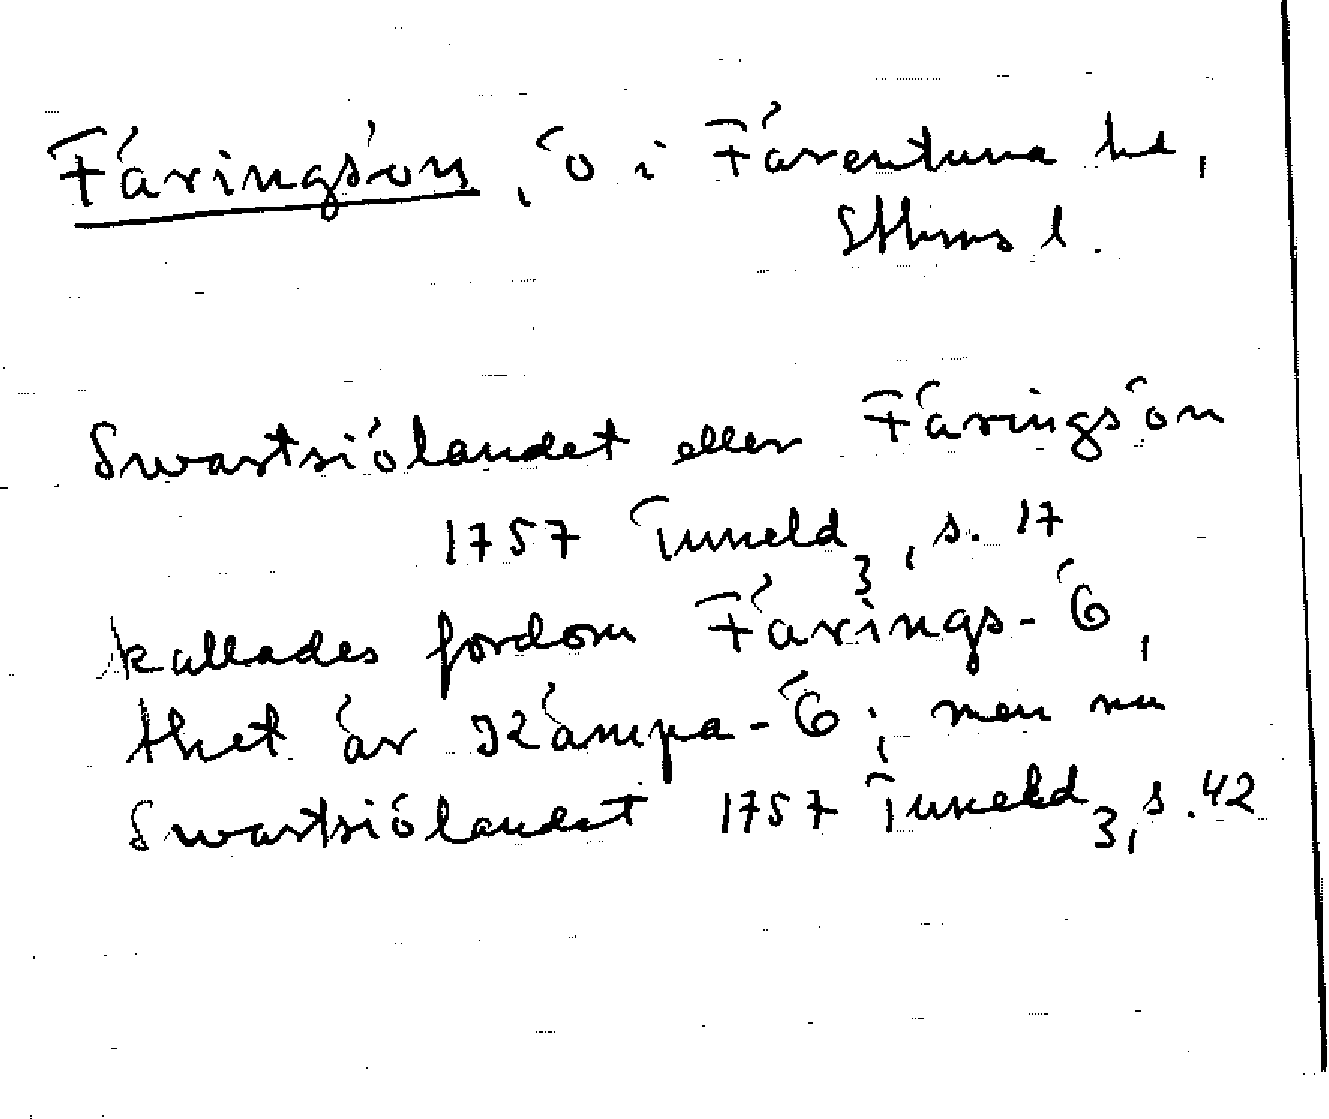 Färingsön, ö i Färentuna hd,
Sthms l.
Swartsiölandet eller Färingsön
1757 Tuneld₃, s. 17
kallades fordom Färings-Ö,
thet är Kämpa-Ö; men nu
Swartsiölandet 1757 Tuneld₃, s. 42